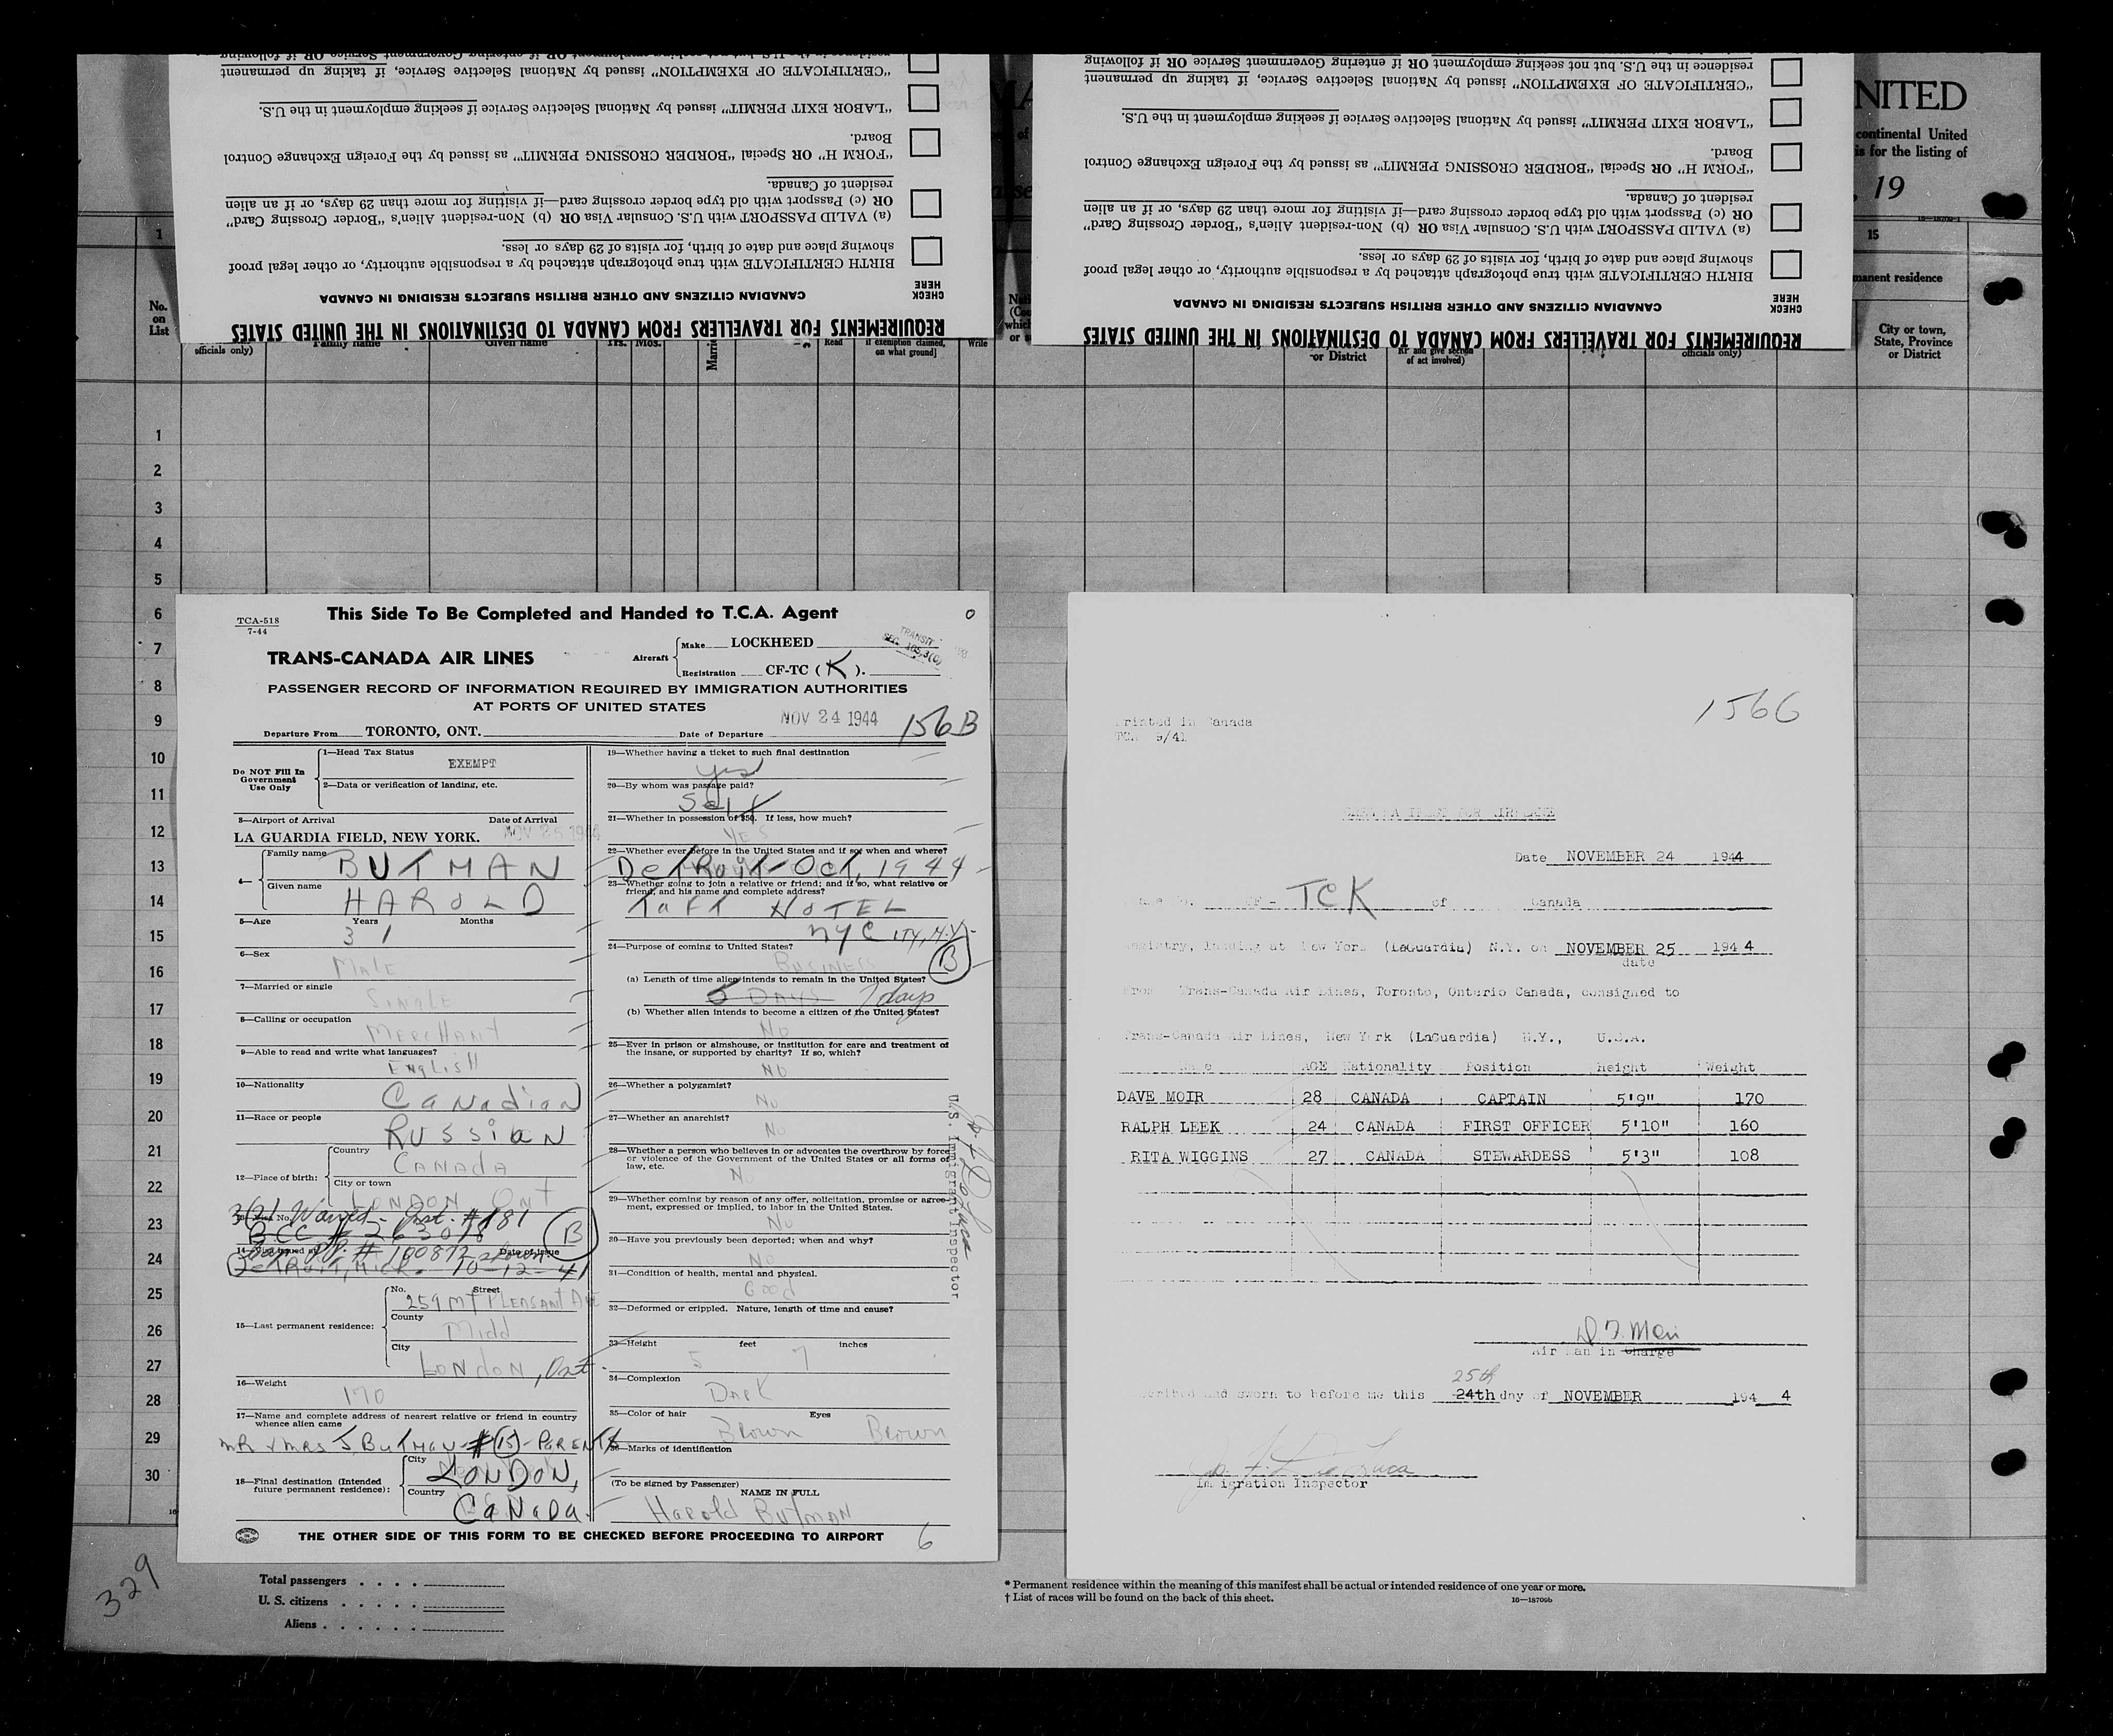 REQUIREMENTS FOR TRAVELLERS FROM CANADA TO DESTINATIONS IN THE UNITED STATES
CANADIAN CITIZENS AND OTHER BRITISH SUBJECTS RESIDING IN CANADA
CHECK
HERE
BIRTH CERTIFICATE with true photograph attached by a responsible authority, or other legal proof
showing place and date of birth, for visits of 29 days or less.
(a) VALID PASSPORT with U.S. Consular Visa OR (b) Non-resident Alien's "Border Crossing Card"
OR (c) Passport with old type border crossing card—if visiting for more than 29 days, or if an alien
resident of Canada.
"FORM H" OR Special "BORDER CROSSING PERMIT" as issued by the Foreign Exchange Control
Board.
"LABOR EXIT PERMIT" issued by National Selective Service if seeking employment in the U.S.
"CERTIFICATE OF EXEMPTION" issued by National Selective Service, if taking up permanent
residence in the U.S. but not seeking employment OR if entering Government Service OR if following
REQUIREMENTS FOR TRAVELLERS FROM CANADA TO DESTINATIONS IN THE UNITED STATES
CANADIAN CITIZENS AND OTHER BRITISH SUBJECTS RESIDING IN CANADA
CHECK
HERE
BIRTH CERTIFICATE with true photograph attached by a responsible authority, or other legal proof
showing place and date of birth, for visits of 29 days or less.
(a) VALID PASSPORT with U.S. Consular Visa OR (b) Non-resident Alien's "Border Crossing Card"
OR (c) Passport with old type border crossing card—if visiting for more than 29 days, or if an alien
resident of Canada.
"FORM H" OR Special "BORDER CROSSING PERMIT" as issued by the Foreign Exchange Control
Board.
"LABOR EXIT PERMIT" issued by National Selective Service if seeking employment in the U.S.
"CERTIFICATE OF EXEMPTION" issued by National Selective Service, if taking up permanent
residence in the U.S. but not seeking employment OR if entering Government Service OR if following
NITED
continental United
is for the listing of
, 19
1
15
manent residence
No.
on
List
City or town,
State, Province
or District
officials only)
Family name
Given name
Yrs. Mos.
Read
if exemption claimed,
on what ground]
Write
or District
of act involved)
officials only)
1
2
3
4
5
6
7
8
9
10
11
12
13
14
15
16
17
18
19
20
21
22
23
24
25
26
27
28
29
30
TCA-518
7-44
This Side To Be Completed and Handed to T.C.A. Agent
0
TRANS-CANADA AIR LINES
Aircraft
Make LOCKHEED
Registration CF-TC ( K ).
TRANSIT
PASSENGER RECORD OF INFORMATION REQUIRED BY IMMIGRATION AUTHORITIES
AT PORTS OF UNITED STATES
Departure From TORONTO, ONT. Date of Departure NOV 24 1944 156B
Do NOT Fill In
Government
Use Only
1—Head Tax Status
EXEMPT
2—Data or verification of landing, etc.
3—Airport of Arrival Date of Arrival
LA GUARDIA FIELD, NEW YORK. NOV 25 1944
4— Family name BUTMAN
Given name HAROLD
5—Age Years Months
31
6—Sex
Male
7—Married or single
Single
8—Calling or occupation
Merchant
9—Able to read and write what languages?
English
10—Nationality
Canadian
11—Race or people
Russian
12—Place of birth: Country
Canada
City or town
London, Ont
3(2) Waived - Inst. #181
BCC # 263018
B
14—Visa issued at Date of Issue
P.P. # 100872 shown
Detroit, Mich. 10-12-41
15—Last permanent residence: No. Street
259 Mt Pleasant Ave
County
Midd
City
London, Ont.
16—Weight
170
17—Name and complete address of nearest relative or friend in country
whence alien came
MR & MRS J. BUTMAN - #(15) - PARENTS
18—Final destination (Intended
future permanent residence):
City LONDON,
Country CANADA.
19—Whether having a ticket to such final destination
yes
20—By whom was passage paid?
Self
21—Whether in possession of $50. If less, how much?
YES
22—Whether ever before in the United States and if so, when and where?
Detroit - Oct, 1944
23—Whether going to join a relative or friend; and if so, what relative or
friend, and his name and complete address?
Taft HOTEL
NYCITY, N.Y.
24—Purpose of coming to United States?
Business
B
(a) Length of time alien intends to remain in the United States?
5 Days 7 days
(b) Whether alien intends to become a citizen of the United States?
No
25—Ever in prison or almshouse, or institution for care and treatment of
the insane, or supported by charity? If so, which?
No
26—Whether a polygamist?
No
27—Whether an anarchist?
No
28—Whether a person who believes in or advocates the overthrow by force
or violence of the Government of the United States or all forms of
law, etc.
No
29—Whether coming by reason of any offer, solicitation, promise or agree-
ment, expressed or implied, to labor in the United States.
No
30—Have you previously been deported; when and why?
No
31—Condition of health, mental and physical.
Good
32—Deformed or crippled. Nature, length of time and cause?
33—Height feet inches
5 7
34—Complexion
Dark
35—Color of hair Eyes
Brown Brown
36—Marks of identification
(To be signed by Passenger)
NAME IN FULL
Harold Butman
U.S. Immigrant Inspector
THE OTHER SIDE OF THIS FORM TO BE CHECKED BEFORE PROCEEDING TO AIRPORT
6
156G
Printed in Canada
TCA 9/41
Date NOVEMBER 24 1944
CF - TCK of Canada
Registry, landing at New York (LaGuardia) N.Y. on NOVEMBER 25 1944
date
From Trans-Canada Air Lines, Toronto, Ontario Canada, consigned to
Trans-Canada Air Lines, New York (LaGuardia) N.Y., U.S.A.
Name AGE Nationality Position Height Weight
DAVE MOIR 28 CANADA CAPTAIN 5'9" 170
RALPH LEEK 24 CANADA FIRST OFFICER 5'10" 160
RITA WIGGINS 27 CANADA STEWARDESS 5'3" 108
Air Man in Charge
25th
and sworn to before me this 24th day of NOVEMBER 194 4
Immigration Inspector
329
Total passengers . . . .
U. S. citizens . . . . .
Aliens . . . . . .
* Permanent residence within the meaning of this manifest shall be actual or intended residence of one year or more.
† List of races will be found on the back of this sheet.
16—18709b